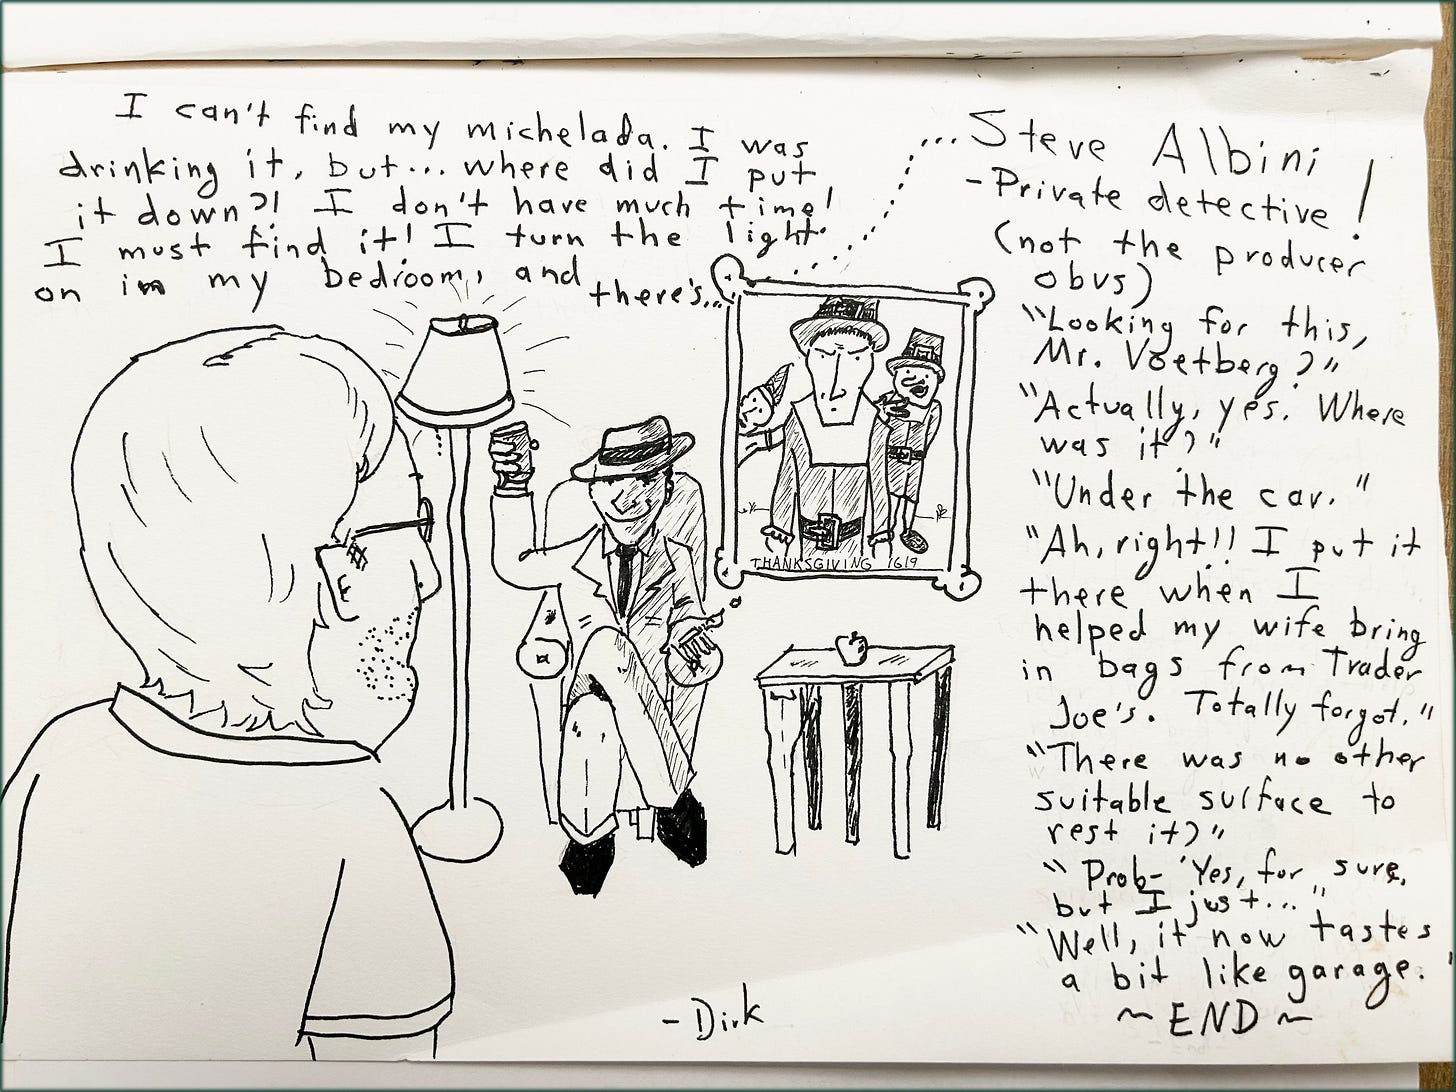 I can't find my michelada. I was
drinking it, but... where did I put
it down?! I don't have much time!
I must find it! I turn the light
on in my bedroom, and
there's...
...Steve Albini
-Private detective!
(not the producer
obvs)
"Looking for this,
Mr. Voetberg?"
"Actually, yes. Where
was it?"
"Under the car."
"Ah, right!! I put it
there when I
helped my wife bring
in bags from Trader
Joe's. Totally forgot."
"There was no other
suitable surface to
rest it?"
"Prob- 'Yes, for sure,
but I just..."
"Well, it now tastes
a bit like garage.
~ END ~
THANKSGIVING 1619
-Dirk